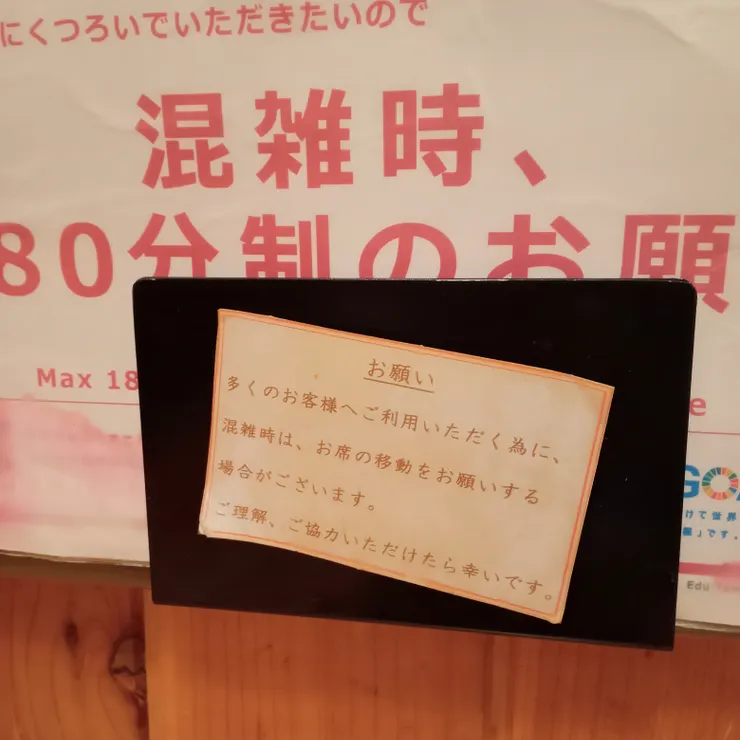 にくつろいでいただきたいので
混雑時、
80分制のお願
Max 18
e
お願い
多くのお客様へご利用いただく為に、
混雑時は、お席の移動をお願いする
場合がございます。
ご理解、ご協力いただけたら幸いです。
GO
けて世界
」です。
Edu